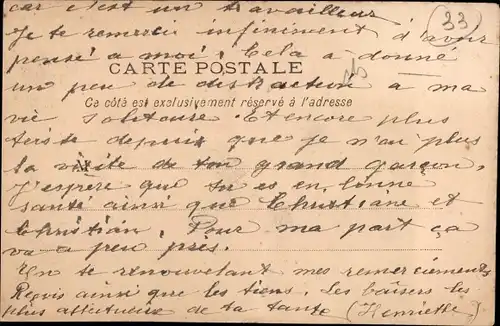 car c'est un travailleur
33
Je te remercie infiniment d'avoir
pensé a moi, Cela a donné
CARTE POSTALE
un peu de distraction a ma
Ce côté est exclusivement réservé à l'adresse
vie solitaire. Et encore plus
triste depuis que je n'ai plus
la visite de ton grand garçon,
J'espère que tu es en bonne
santé ainsi que Christiane et
Christian, Pour ma part ça
va a peu près.
En te renouvelant mes remerciements
Reçois ainsi que les tiens, les baisers les
plus affectueux de ta tante (Henriette)